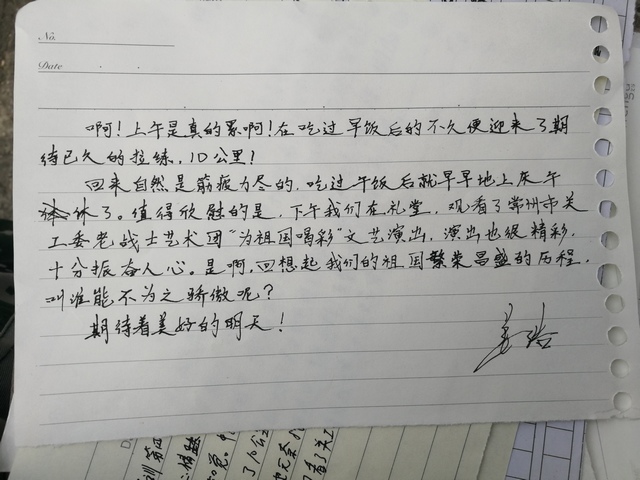 No.
Date
啊！上午是真的累啊！在吃过早饭后的不久便迎来了期
待已久的拉练，10公里！
回来自然是筋疲力尽的，吃过午饭后就早早地上床午
休了。值得欣慰的是，下午我们在礼堂，观看了常州市关
工委老战士艺术团“为祖国喝彩”文艺演出，演出也很精彩，
十分振奋人心。是啊，回想起我们的祖国繁荣昌盛的历程，
叫谁能不为之骄傲呢？
期待着美好的明天！